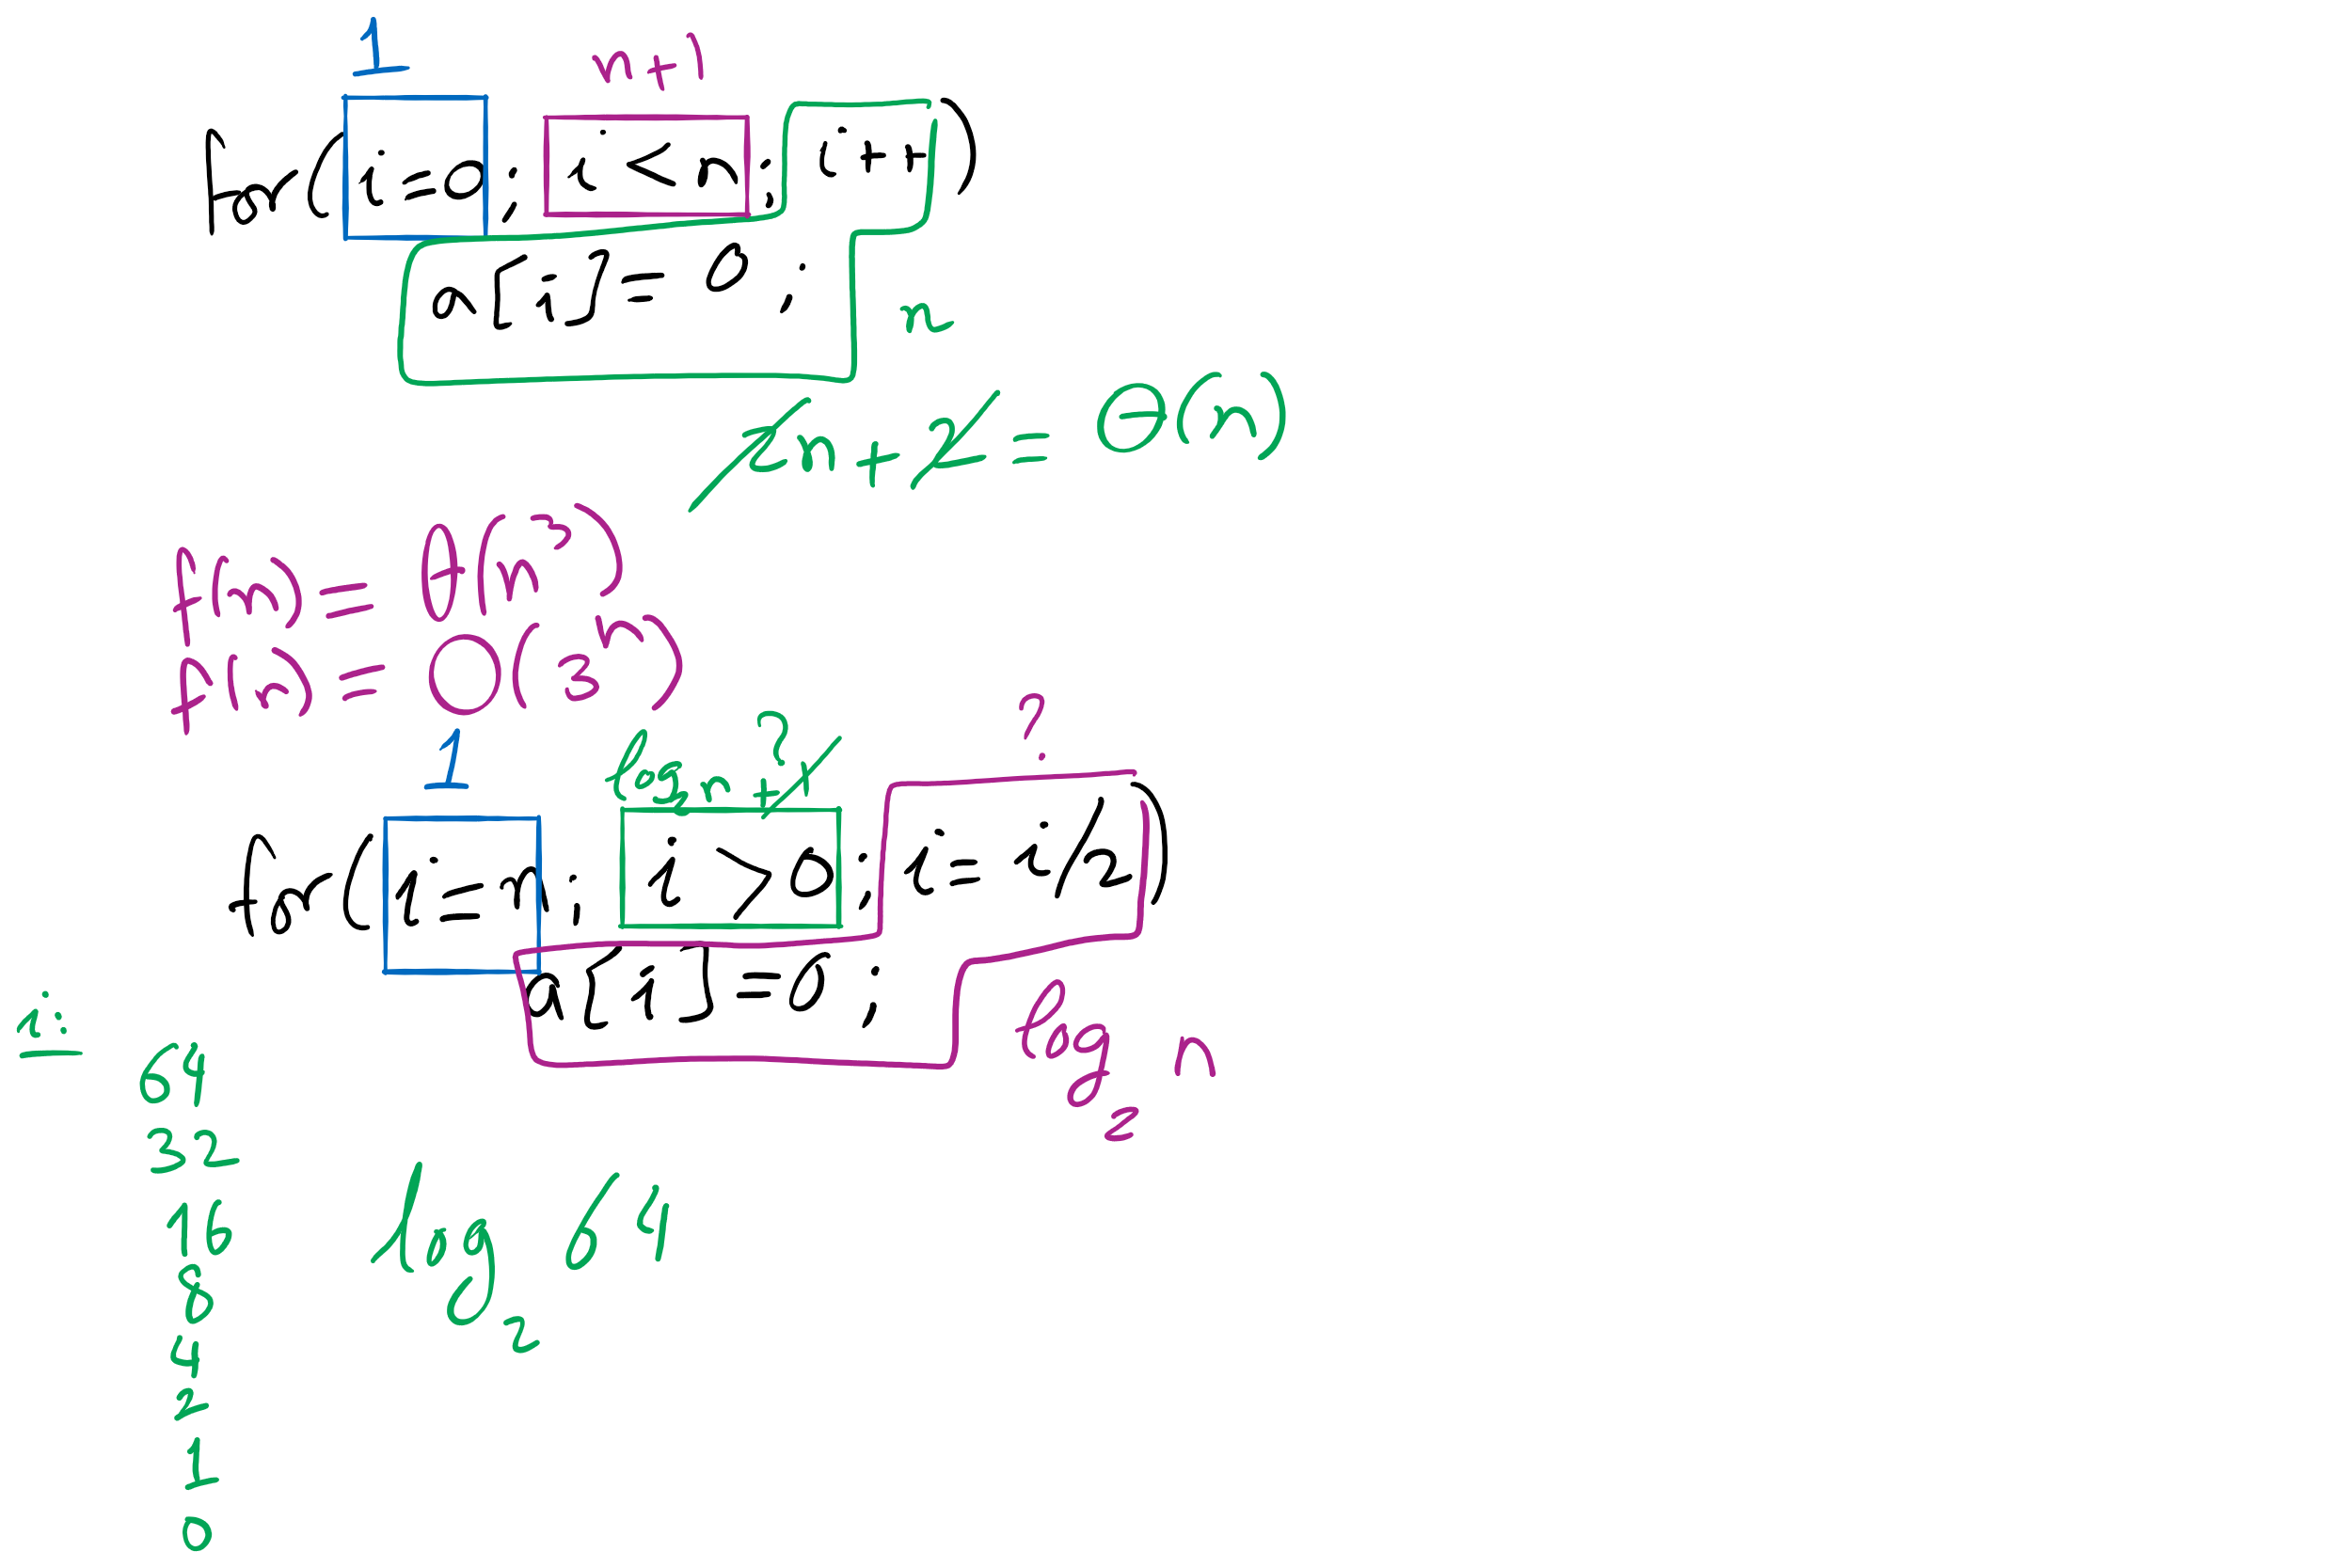 1
n+1
for(i=0; i<n; i++)
a[i]=0;
n
2n+2=Θ(n)
f(n)=θ(n³)
f(n)=O(3ⁿ)
?
?
1
log₂n+1
for(i=n; i>0; i=i/2)
a[i]=0;
log₂ n
i:
64
32
16
log₂ 64
8
4
2
1
0